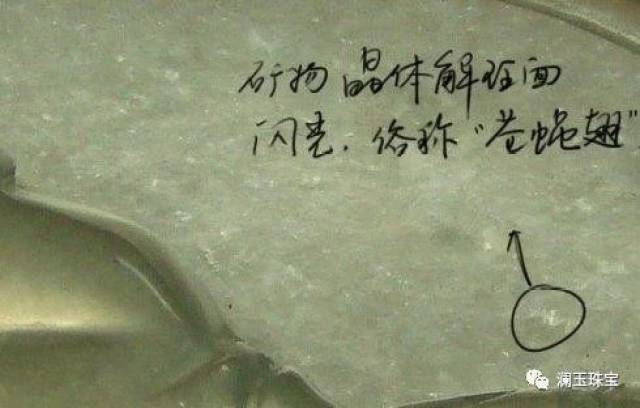 矿物晶体解理面
闪光.俗称"苍蝇翅"
澜玉珠宝